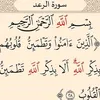 سورة الرعد
بِسْمِ اللَّهِ الرَّحْمَٰنِ الرَّحِيمِ
الَّذِينَ آمَنُوا وَتَطْمَئِنُّ قُلُوبُهُم
بِذِكْرِ اللَّهِ أَلَا بِذِكْرِ اللَّهِ تَطْمَئِنُّ
الْقُلُوبُ